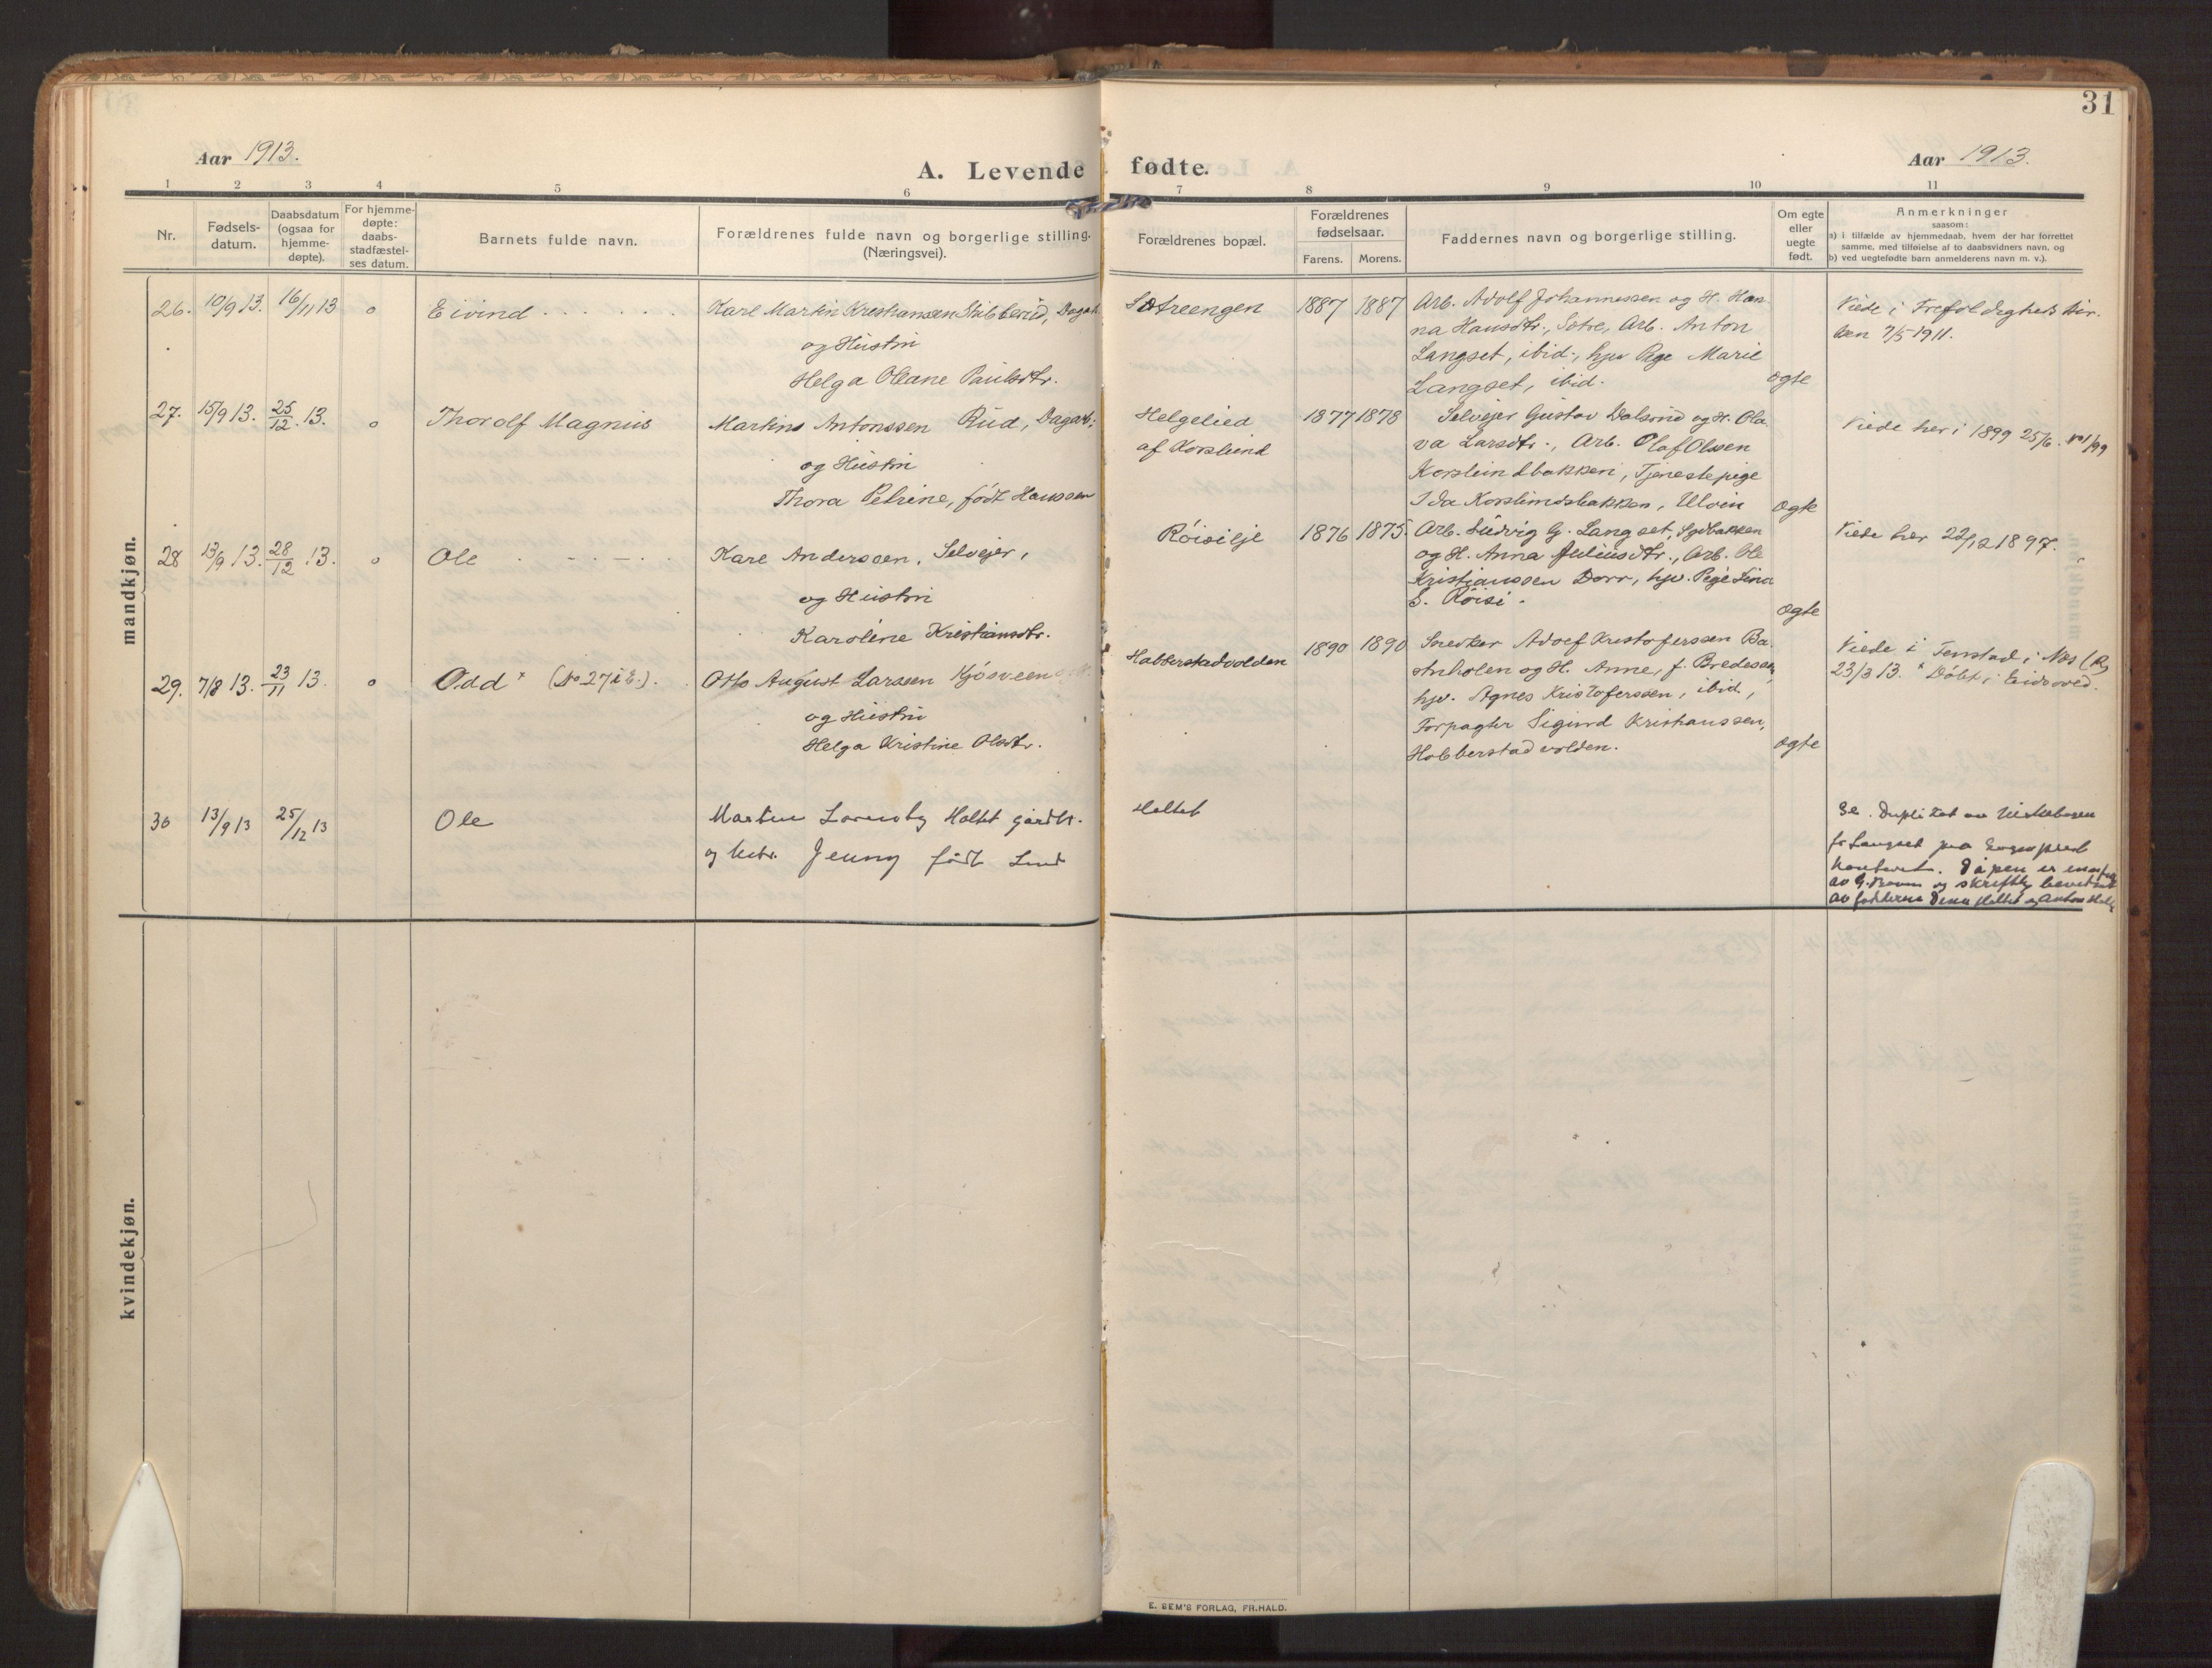 31
Aar 1913.
A. Levende fødte.
Aar 1913.
1 2 3 4 5 6 7 8 9 10 11
Nr.
Fødsels-
datum.
Daabsdatum
(ogsaa for
hjemme-
døpte).
For hjemme-
døpte:
daabs-
stadfæstel-
ses datum.
Barnets fulde navn.
Forældrenes fulde navn og borgerlige stilling.
(Næringsvei).
Forældrenes bopæl.
Forældrenes
fødselsaar.
Farens. Morens.
Faddernes navn og borgerlige stilling.
Om egte
eller
uegte
født.
Anmerkninger
saasom:
a) i tilfælde av hjemmedaab, hvem der har forrettet
samme, med tilføielse af to daabsvidners navn, og
b) ved uegtefødte barn anmelderens navn m. v.).
mandkjøn.
26. 10/9 13. 16/11 13 o Eivind
Karl Martin Kristiansen Stubberud, Dagarb.
og Hustru
Helga Oleane Paulsdtr.
Sætreengen 1887 1887
Arb. Adolf Johannessen og H. Han-
na Hansdtr., Sætre, Arb. Anton
Langset, ibid., hjv Pige Marie
Langset, ibid.
ægte
Viede i Trefoldigheds kir-
ken 7/5 1911.
27. 15/9 13. 25/12 13. o Thorolf Magnus
Martins Antonssen Rud, Dagarb.,
og Hustru
Thora Petrine, født Hanssen
Helgelied
af Korslund
1877 1878
Selvejer Gustav Dalsrud og H. Ola-
va Larsdtr., Arb. Olaf Olssen
Korslundbakken, Tjenestepige
Ida Korslundsbakken, Ulvin
ægte
Viede her i 1899 25/6. No 1/99
28 13/9 13. 28/12 13. o Ole
Karl Anderssen, Selvejer,
og Hustru
Karoline Kristiansdtr.
Röisilje 1876 1875.
Arb. Ludvig G. Langset, Sydbakken
og H. Anna Juliusdtr., Arb. Ole
Kristianssen Dorr, hjv. Pige Lina
S. Röisi.
ægte
Viede her 22/12 1897.
29. 7/8 13. 23/11 13. o Odd x (No 27 i E.).
Otto August Larssen Kjösveen
og Hustru
Helga Kristine Olsdtr.
Habberstadvolden 1890 1890
Snedker Adolf Kristoferssen Ba-
stuholen og H. Anne, f. Bredesen,
hjv. Agnes Kristoferssen, ibid.,
Forpagter Sigurd Kristianssen,
Habberstadvolden.
ægte
Viede i Tenstad i Nes (R)
23/3 13. x Döbt i Eidsvold.
30 13/9 13 25/12 13 Ole
Martin Lorentz Holtet gårdbr.
og hustr. Jenny født Lund
Holtet
Se. Duplikat av kirkeboken
for Langset paa sogneprest
kontoret. Dåpen er
av G. Braun og skriftlig bevitnet
av fadderne Dina Holtet og Anton
kvindekjøn.
E. SEM'S FORLAG, FR.HALD.